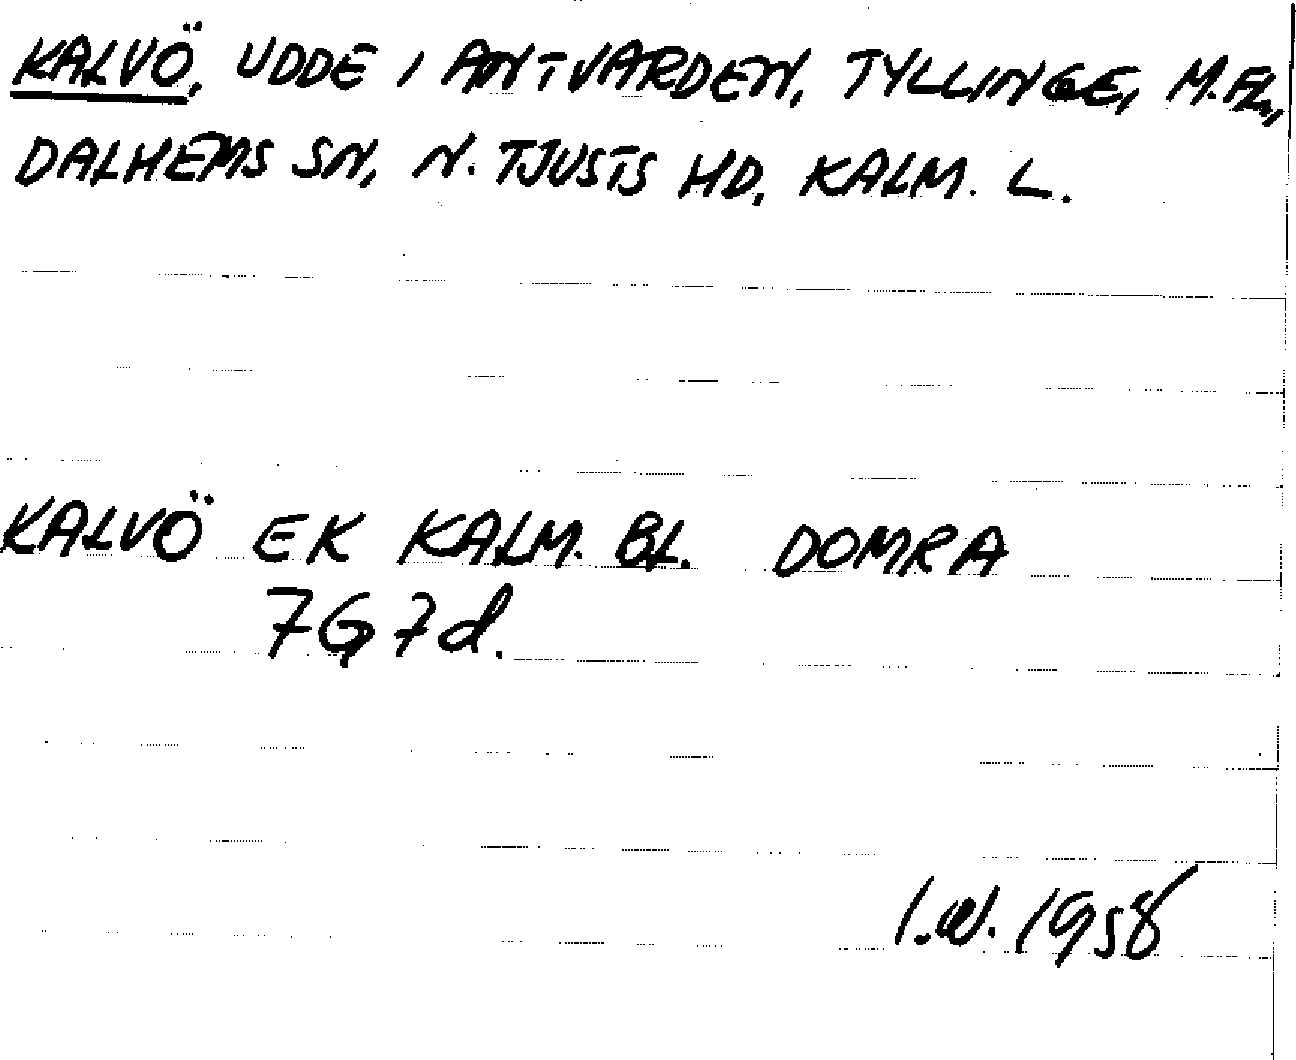 KALVÖ, UDDE I ANTVARDEN, TYLLINGE, M.FL.,
DALHEMS SN, N. TJUSTS HD, KALM. L.
KALVÖ EK KALM. BL. DOMRA
7G7d.
I.W. 1958